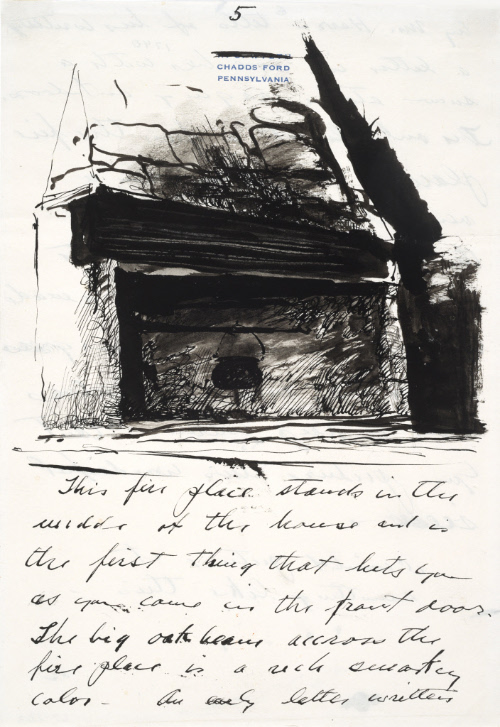 5
CHADDS FORD
PENNSYLVANIA
This fire place stands in the
middle of the house and is
the first thing that hits you
as you come in the front door.
The big oak beam accross the
fire place is a rich smokey
color - An early letter written